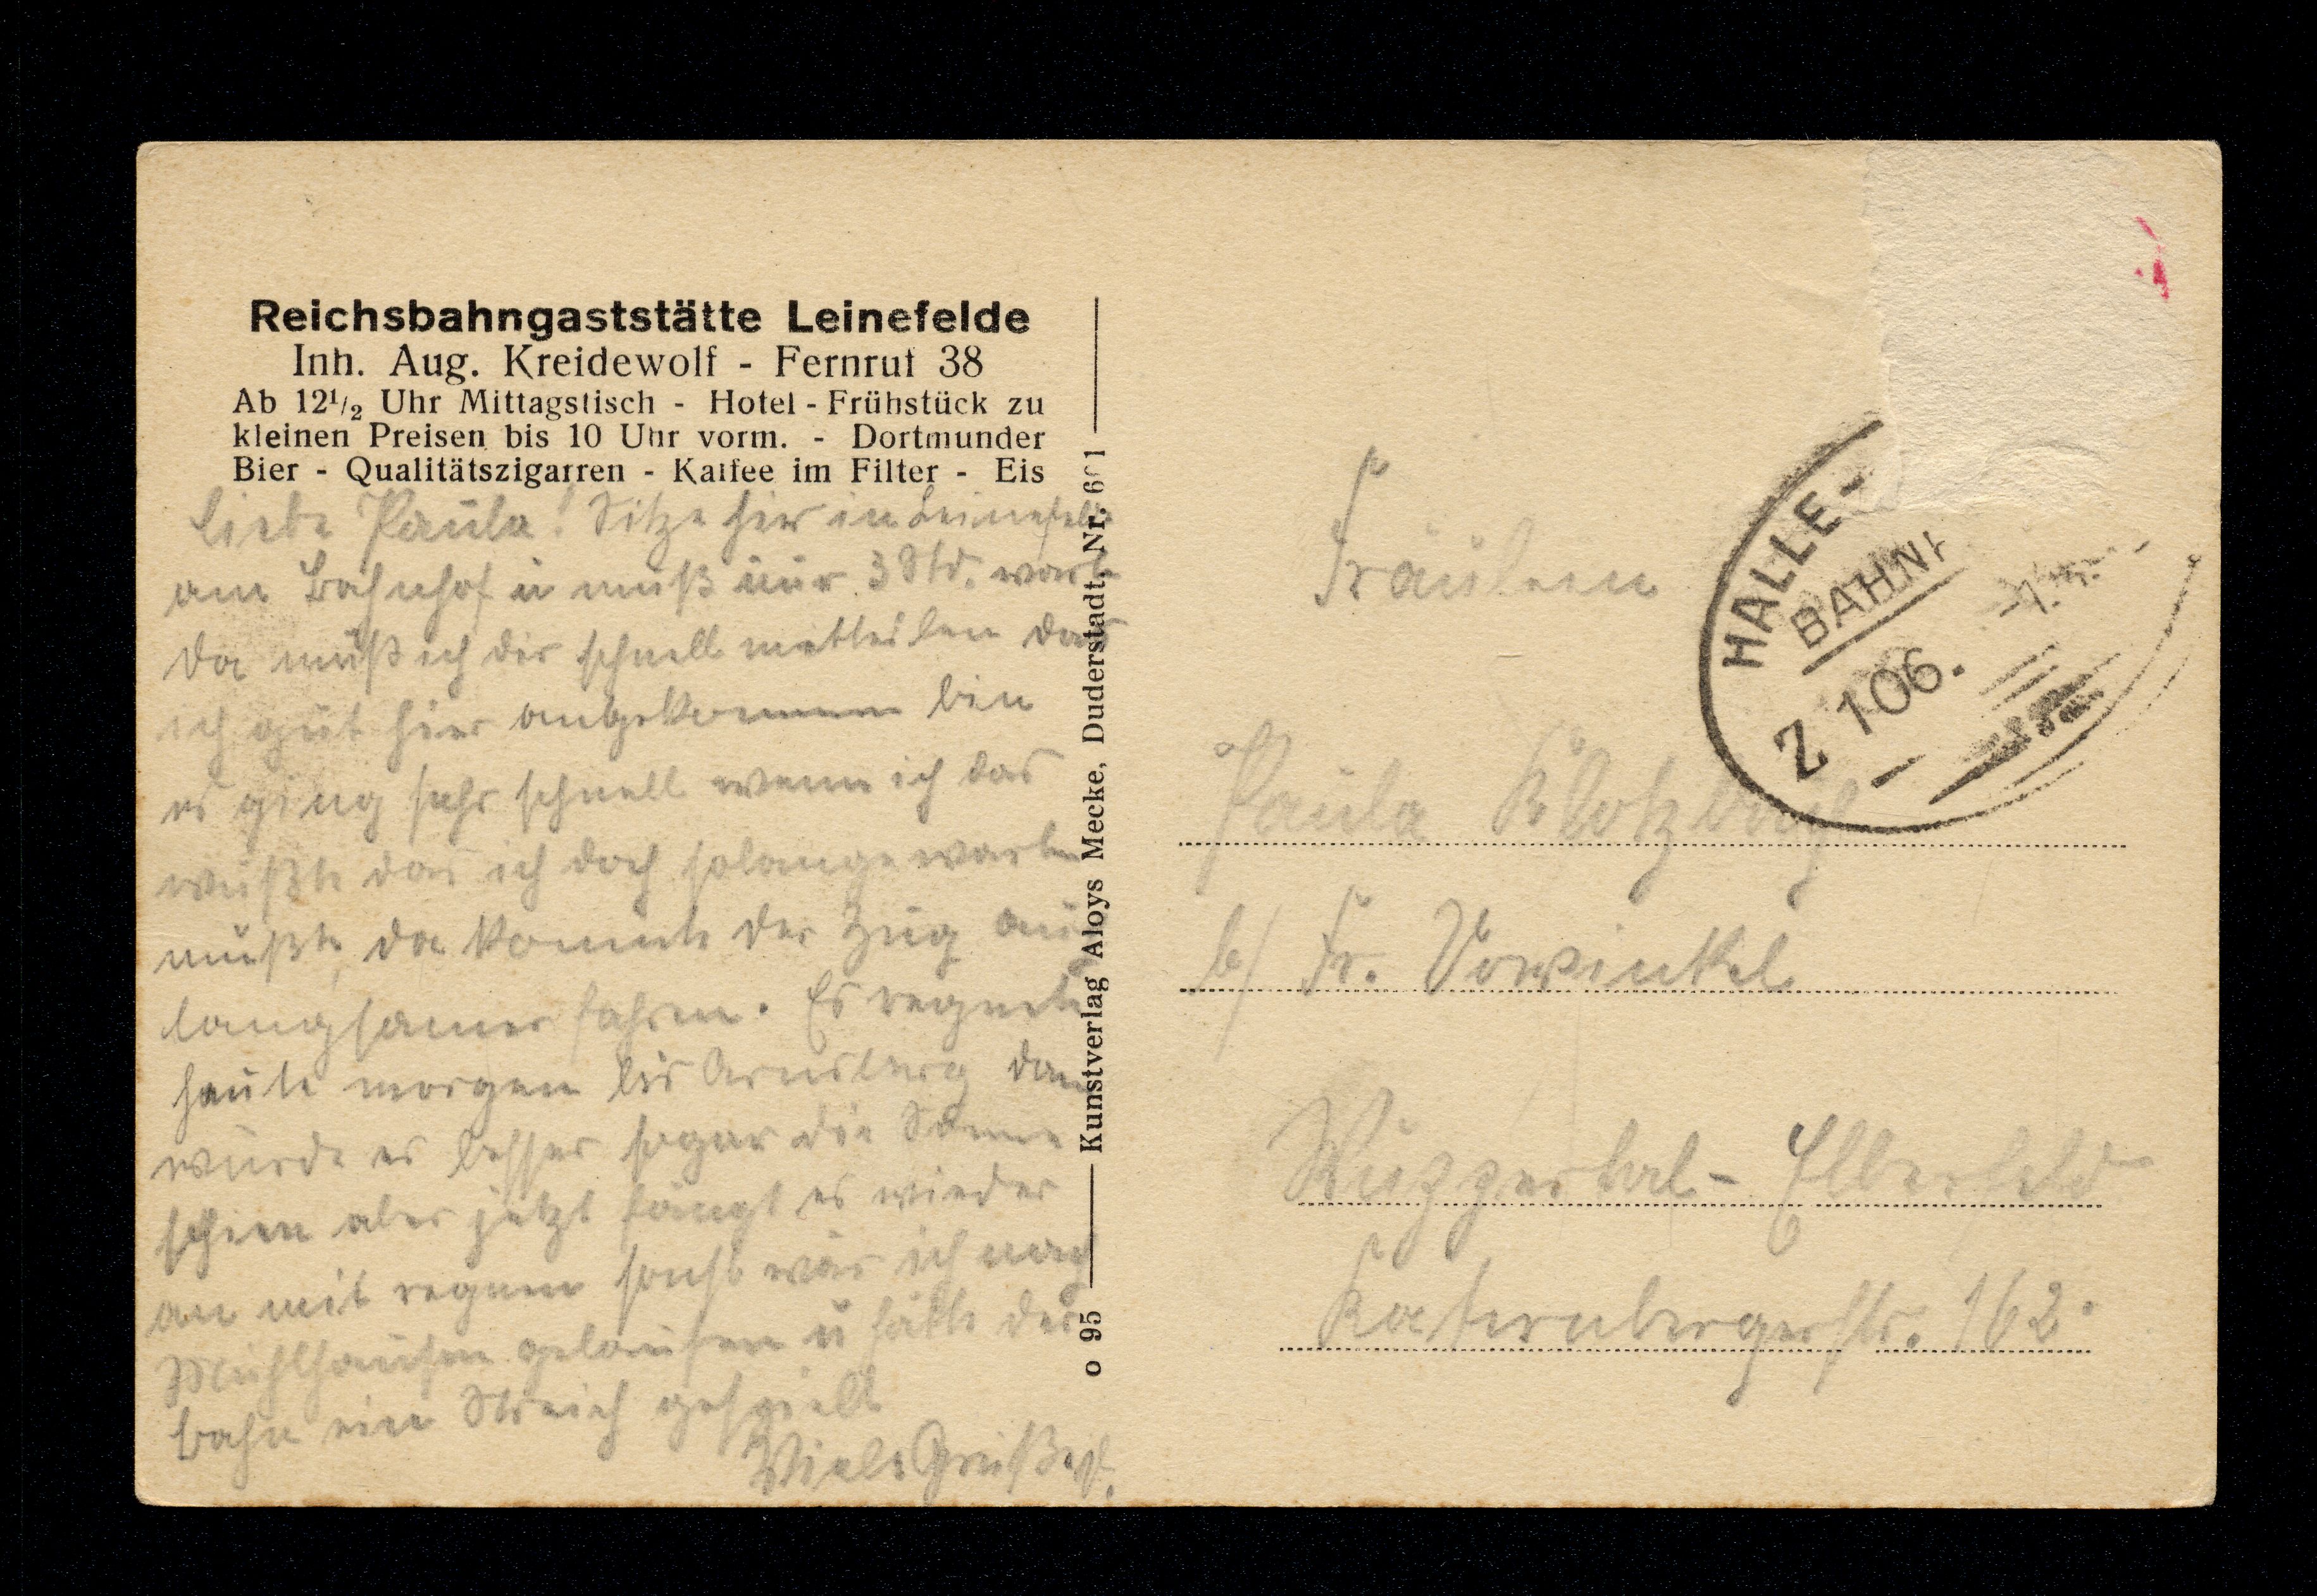 Reichsbahngaststätte Leinefelde
Inh. Aug. Kreidewolf - Fernruf 38
Ab 12½ Uhr Mittagstisch - Hotel - Frühstück zu
kleinen Preisen bis 10 Uhr vorm. - Dortmunder
Bier - Qualitätszigarren - Kaffee im Filter - Eis
Liebe Paula! Sitze hier in Leinefelde
am Bahnhof u muß nur 3 Std. warten
da muß ich dir schnell mitteilen das
ich gut hier angekommen bin
es ging sehr schnell wenn ich das
wußte das ich doch solange warten
mußte, da konnte der Zug auch
langsamer fahren. Es regnete
heute morgen bis Arnsberg dann
wurde es besser sogar die Sonne
schien aber jetzt fängt es wieder
an mit regnen sonst wär ich nach
Mühlhausen gelaufen u hätte der
bahn ein Streich gespielt
Viele Grüße
o 95 Kunstverlag Aloys Mecke, Duderstadt, Nr.
HALLE-
BAHN
Z 106.
Fräulein
Paula Klotzbach
b/ Fr. Vowinkel
Wuppertal-Elberfeld
Katernbergerstr. 162.